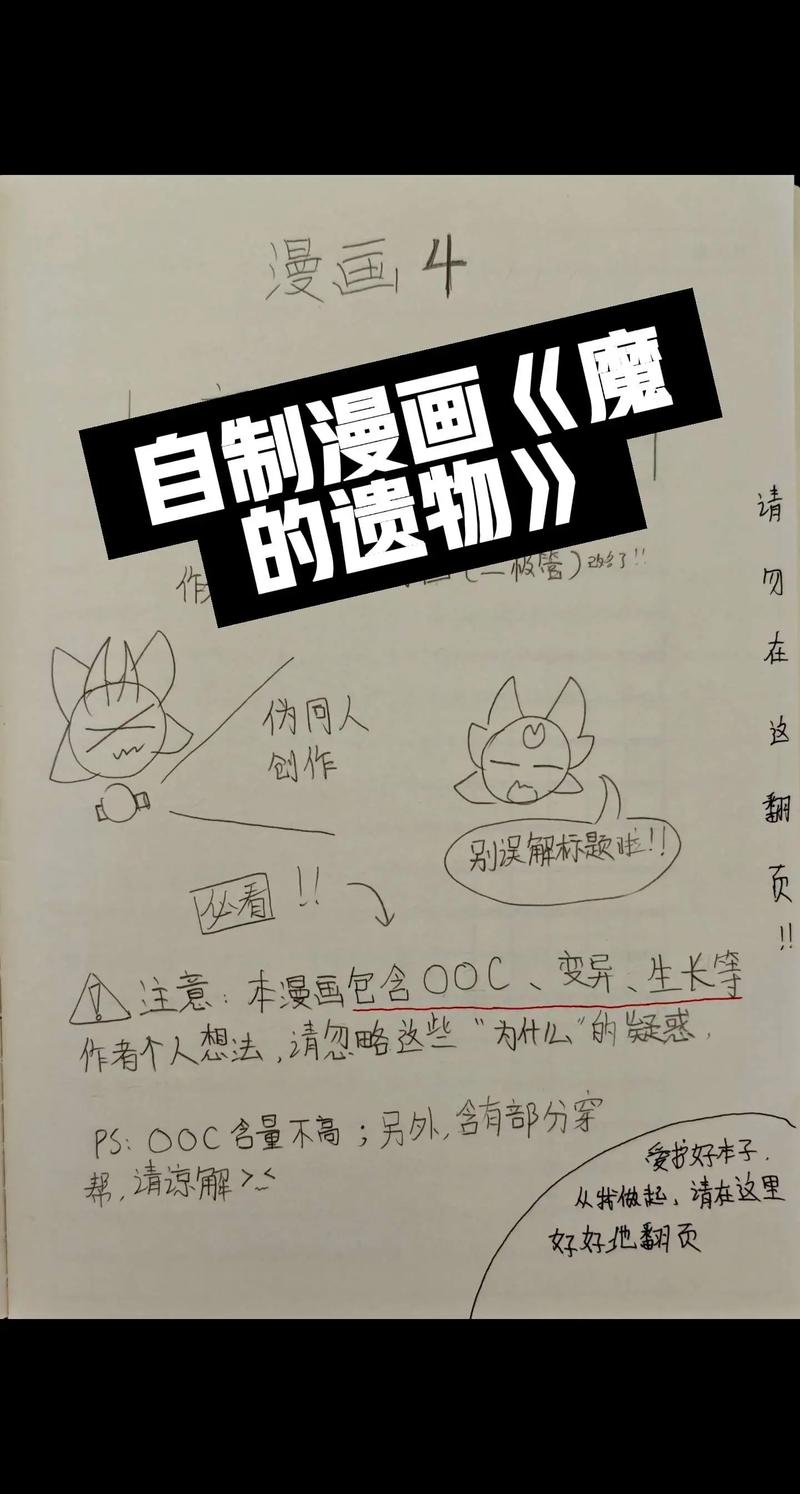 漫画4
自制漫画《魔
的遗物》
作
(二极管)改名了!!
伪同人
创作
别误解标题啦!!
必看!!
注意：本漫画包含OOC、变异、生长等
作者个人想法，请忽略这些“为什么”的疑惑，
PS：OOC含量不高；另外，含有部分穿
帮，请谅解>~<
请勿在这翻页!!
爱护好本子，
从我做起，请在这里
好好地翻页